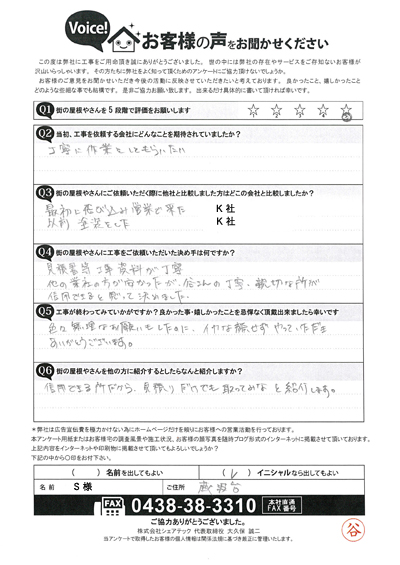 Voice!
お客様の声をお聞かせください
この度は弊社に工事をご用命頂き誠にありがとうございました。世の中には弊社の存在やサービスをご存知ないお客様が
沢山いらっしゃいます。その方たちに弊社をよく知って頂くためのアンケートにご協力頂けないでしょうか。
お客様のご意見をお聞かせいただき今後の活動に反映させていただきたいと考えております。良かったこと、嬉しかったこと
どのような些細な事でも結構です。是非ご協力お願い致します。出来るだけ具体的に書いて頂ければ幸いです。
Q1 街の屋根やさんを5段階で評価をお願いします
1 2 3 4 5
Q2 当初、工事を依頼する会社にどんなことを期待されていましたか?
丁寧に作業をしてもらいたい
Q3 街の屋根やさんにご依頼いただく際に他社と比較しました方はどこの会社と比較しましたか?
最初に飛び込み営業で来た K社
以前塗装をした K社
Q4 街の屋根やさんに工事をご依頼いただいた決め手は何ですか?
見積書等工事資料が丁寧
他の業社の方が安かったが、谷さんの丁寧、親切な所が
信用できると思って決めました。
Q5 工事が終わってみていかがですか?良かった事・嬉しかったことを忌憚なく頂戴出来ましたら幸いです
色々無理なお願いもしたのに、イヤな顔せずやっていただき
ありがとうございます。
Q6 街の屋根やさんを他の方に紹介するとしたらなんと紹介しますか?
信用できる所だから、見積りだけでも取ってみなと紹介します。
*弊社は広告宣伝費を極力かけない為にホームページだけを頼りにお客様への営業活動を行っております。
本アンケート用紙またはお客様宅の調査風景や施工状況、お客様の顔写真を随時ブログ形式のインターネットに掲載させて頂いております。
上記内容をインターネットや印刷物に掲載させて頂いてもよろしいでしょうか?
下記の中から〇印をお付け下さい。
( )名前を出してもよい ( レ )イニシャルなら出してもよい
名前 S様 ご住所
FAX 0438-38-3310 本社直通 FAX番号
ご協力ありがとうございました。
株式会社シェアテック 代表取締役 大久保 誠二
当アンケートで取得したお客様の個人情報は関係法規に基づき厳正に管理いたします。
谷